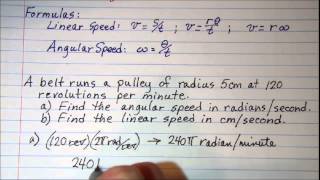 Formulas:
Linear Speed: v = s/t ; v = rθ/t ; v = rω
Angular Speed: ω = θ/t
A belt runs a pulley of radius 5cm at 120
revolutions per minute.
a) Find the angular speed in radians/second.
b) Find the linear speed in cm/sec.
a) (120 rev)(2π rad/rev) → 240π radian/minute
240